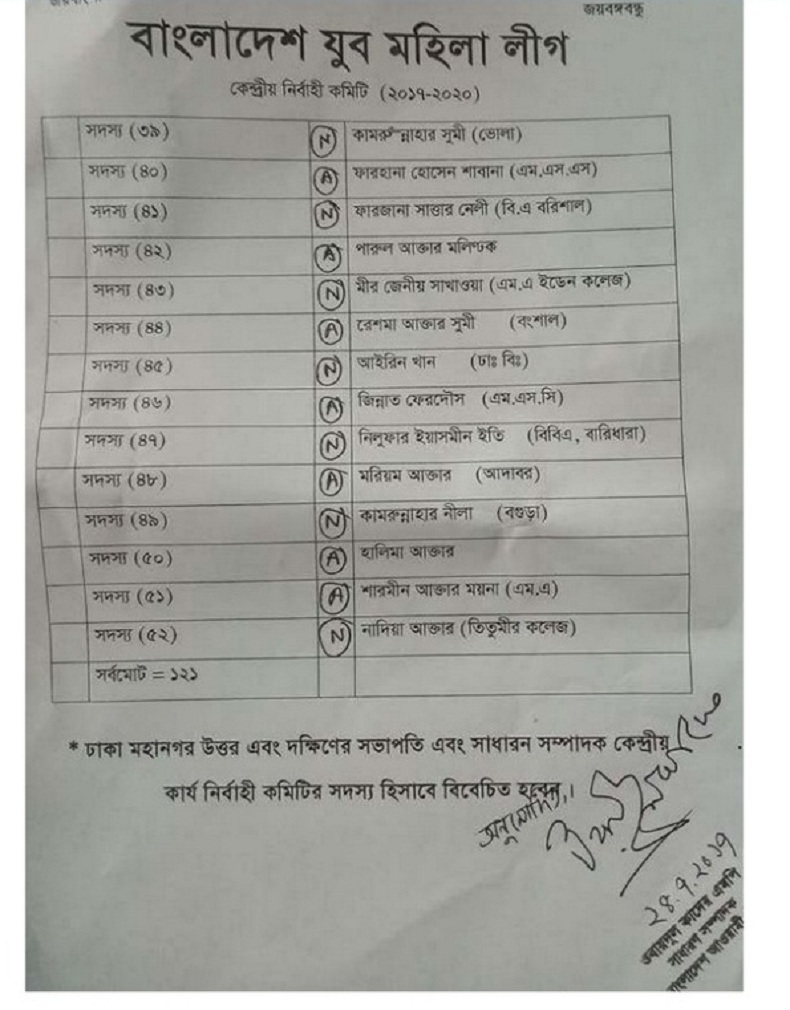 জয়বঙ্গবন্ধু
বাংলাদেশ যুব মহিলা লীগ
কেন্দ্রীয় নির্বাহী কমিটি (২০১৭-২০২০)
সদস্য (৩৯) N কামরুন্নাহার সুমী (ভোলা)
সদস্য (৪০) A ফারহানা হোসেন শাবানা (এম.এস.এস)
সদস্য (৪১) N ফারজানা সাত্তার নেলী (বি.এ বরিশাল)
সদস্য (৪২) A পারুল আক্তার মল্লিক
সদস্য (৪৩) N মীর জেনীয় সাখাওয়া (এম.এ ইডেন কলেজ)
সদস্য (৪৪) A রেশমা আক্তার সুমী (বংশাল)
সদস্য (৪৫) N আইরিন খান (ঢাঃ বিঃ)
সদস্য (৪৬) A জিন্নাত ফেরদৌস (এম.এস.সি)
সদস্য (৪৭) N নিলুফার ইয়াসমীন ইতি (বিবিএ, বারিধারা)
সদস্য (৪৮) A মরিয়ম আক্তার (আদাবর)
সদস্য (৪৯) N কামরুন্নাহার নীলা (বগুড়া)
সদস্য (৫০) A হালিমা আক্তার
সদস্য (৫১) A শারমীন আক্তার ময়না (এম.এ)
সদস্য (৫২) N নাদিয়া আক্তার (তিতুমীর কলেজ)
সর্বমোট = ১২১
* ঢাকা মহানগর উত্তর এবং দক্ষিণের সভাপতি এবং সাধারন সম্পাদক কেন্দ্রীয়
কার্য নির্বাহী কমিটির সদস্য হিসাবে বিবেচিত হবেন।
অনুমোদিত,
২৪.৭.২০১৭
ওবায়দুল কাদের এমপি
সাধারণ সম্পাদক
বাংলাদেশ আওয়ামী